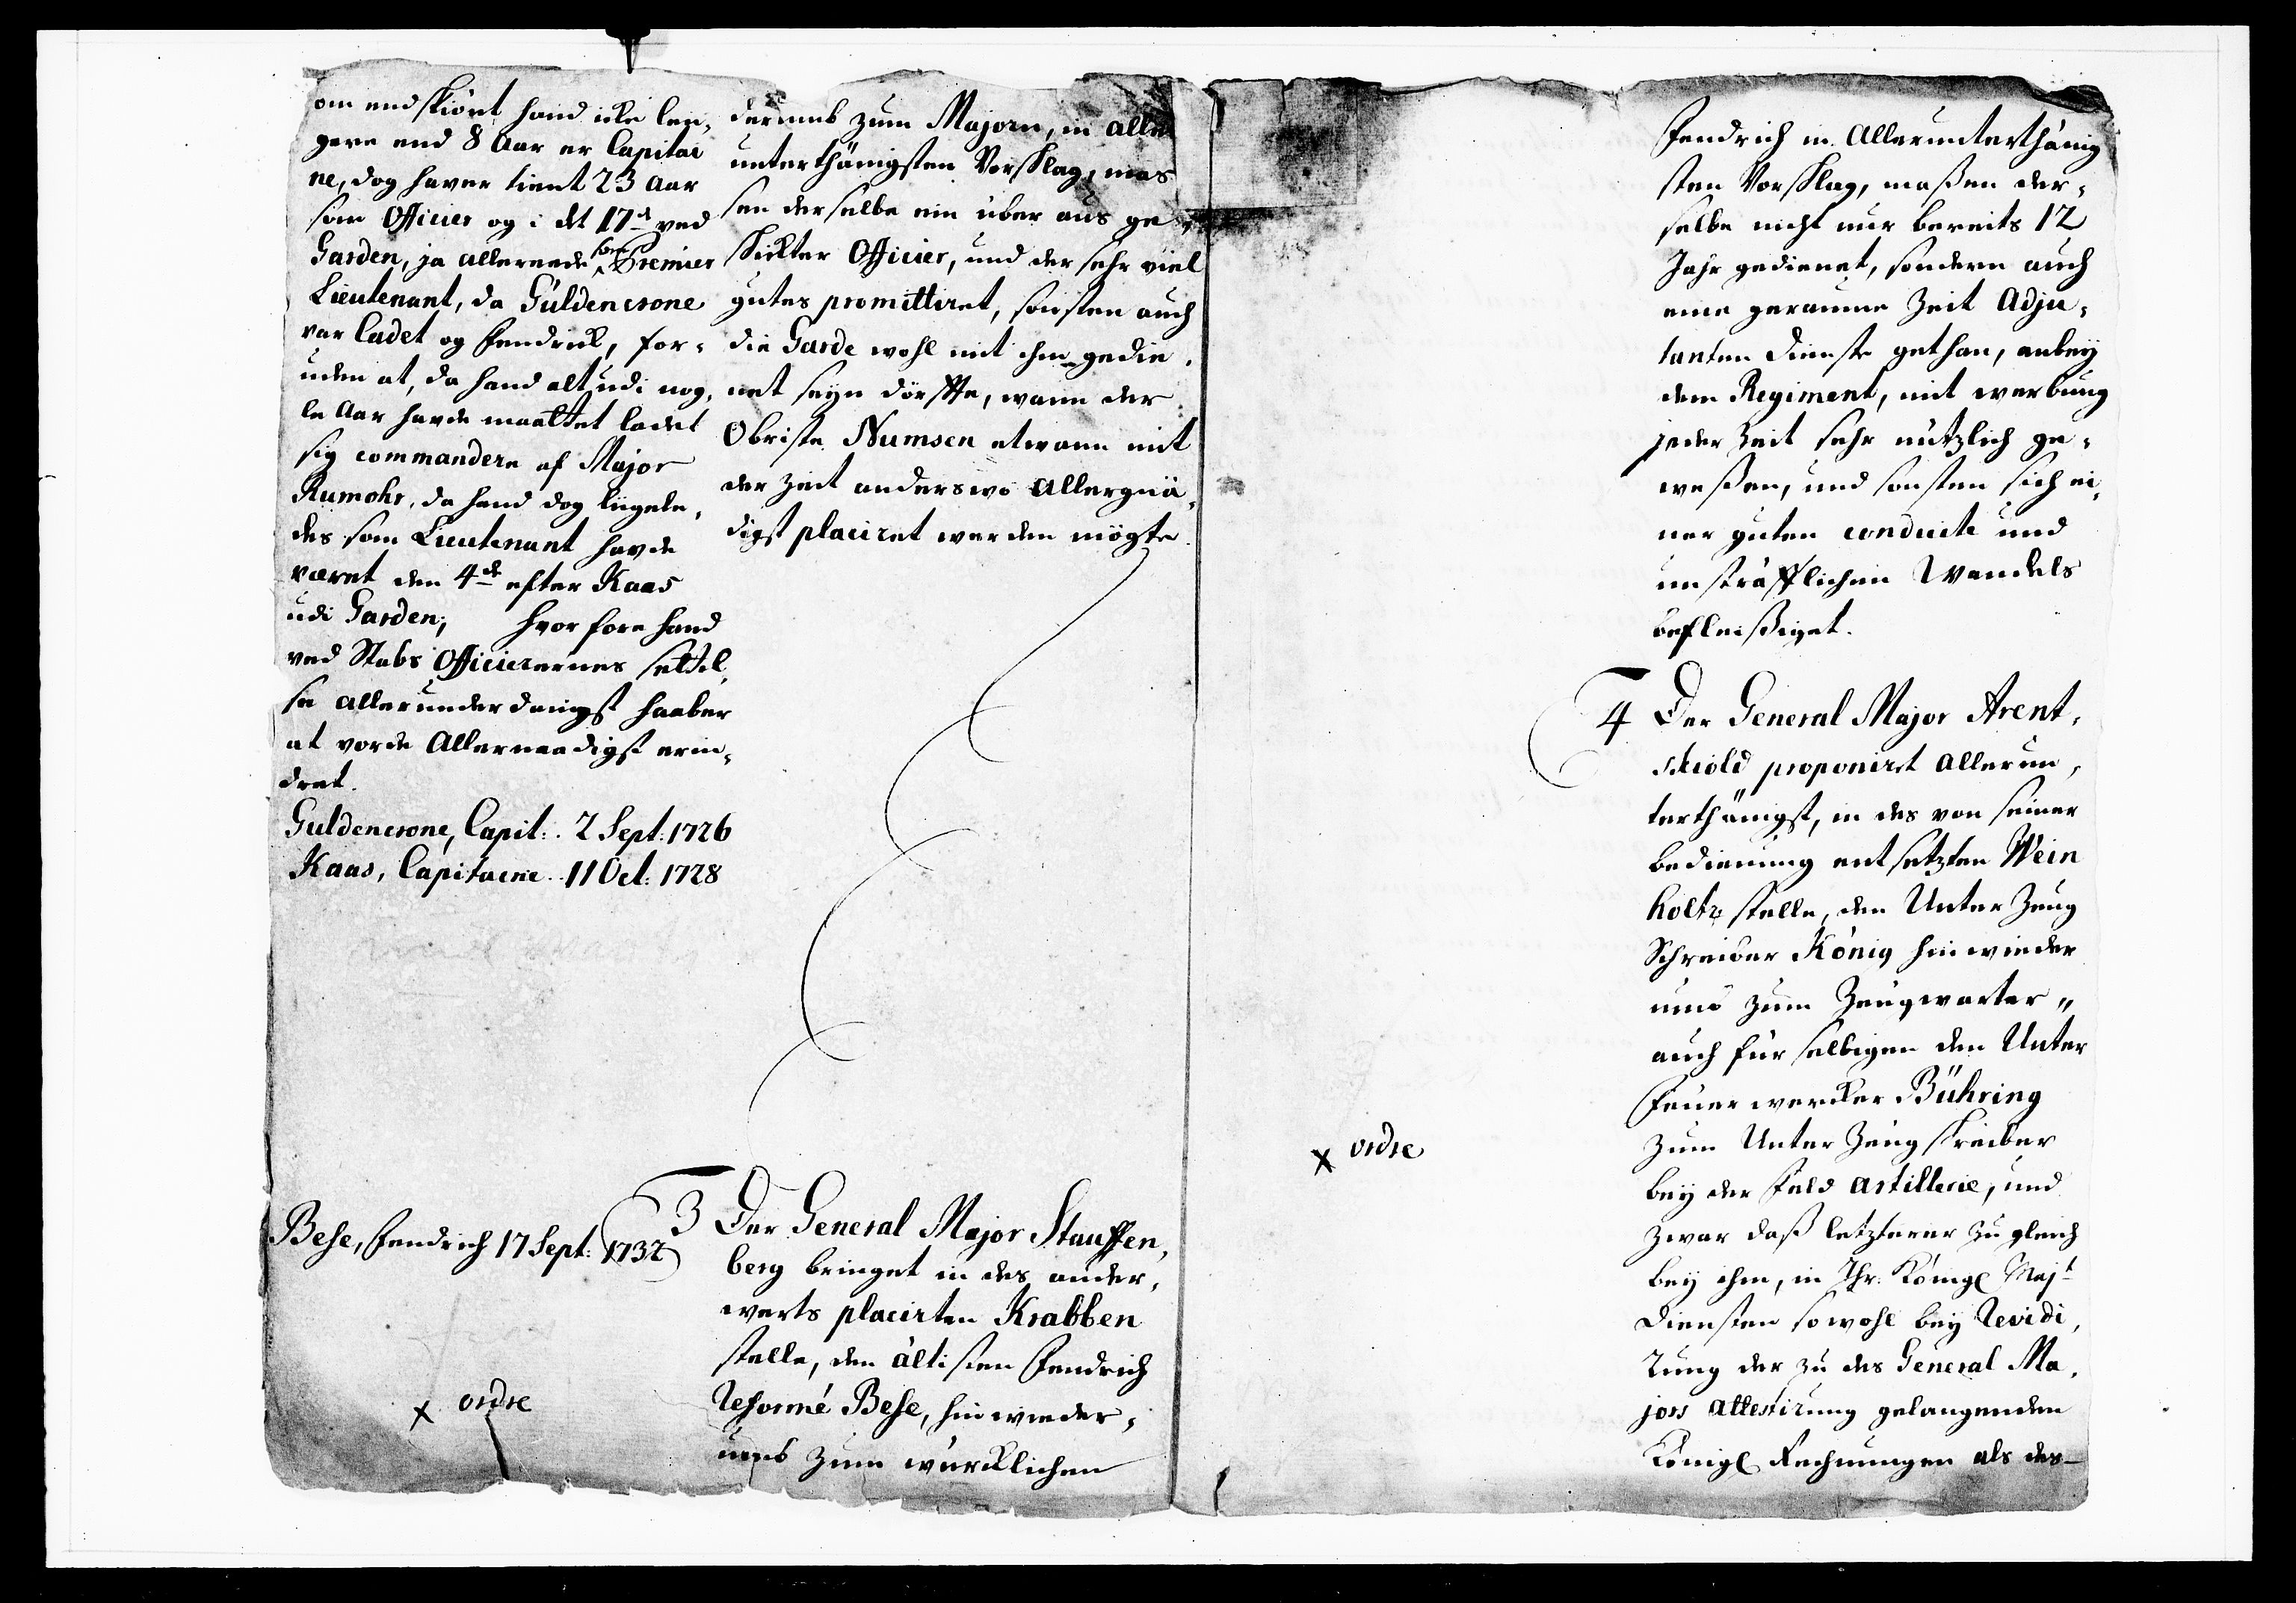 om endskiønt hand icke len¬
gere end 8 Aar er Capitai
ne, dog haver tient 23 Aar
som Officier og i det 17de ved
Garden, ja allereede som Premier
Lieutenant, da Güldencrone
var Cadet og Fendrick, for¬
uden at, da hand alt udi nog¬
le Aar havde maattet ladet
sig commandere af Major
Rumohr, da hand dog liigele¬
des som Lieutenant havde
været den 4de efter Kaas
udi Garden; hvorfore hand
ved Stabs Officierernes settel¬
se allerunderdanigst haaber
at vorde Allernaadigst erin¬
dret.
Guldencrone, Capit: 2 Sept: 1726
Kaas, Capitaine 11 Oct: 1728
Bese, Fendrich 17 Sept: 1732
x ordre
derumb zum Majorn, in aller
unterthänigsten Vorschlag, mas
sen derselbe ein über aus ge¬
schickter Officier, und der sehr viel
gutes promittiret, sonsten auch
die Garde wohl mit ihm gedie¬
net seyn dörffte, wann der
Obriste Numsen etwann mit
der Zeit anderswo Allergnä¬
digst placiret werden mögte.
3 Der General Major Stauffen¬
berg bringet in des ander¬
werts placirten Krabben
stelle, den ältisten Fendrich
Reformé Bese, hinwieder¬
umb zum würcklichen
Fendrich in Allerunterthänig
sten Vorschlag, maßen der¬
selbe nicht nur bereits 12
Jahr gedienet, sondern auch
eine geraume Zeit Adju¬
tanten Dienste gethan, anbey
dem Regiment, mit werbung
jeder Zeit sehr nützlich ge¬
weßen, und sonsten sich ei¬
ner guten conduite und
unsträfflichen Wandels
befleißiget.
4 Der General Major Arent¬
skiold proponirt allerun¬
terthänigst, in des von seiner
bedienung entsetzten Wein
holtz stelle, den Unter Zeug
Schreiber König hinwieder
umb zum Zeugwarter „
auch für selbigen den Unter
Feuerwercker Bühring
zum Unter Zeugschreiber
bey der Feld Artillerie, und
zwar daß letzterer zugleich
bey ihm, in Ihr. Königl Majt
Diensten sowohl bey Revidi¬
rung der zu des General Ma¬
jors Attestirung gelangenden
Königl Rechnungen als des
x ordre